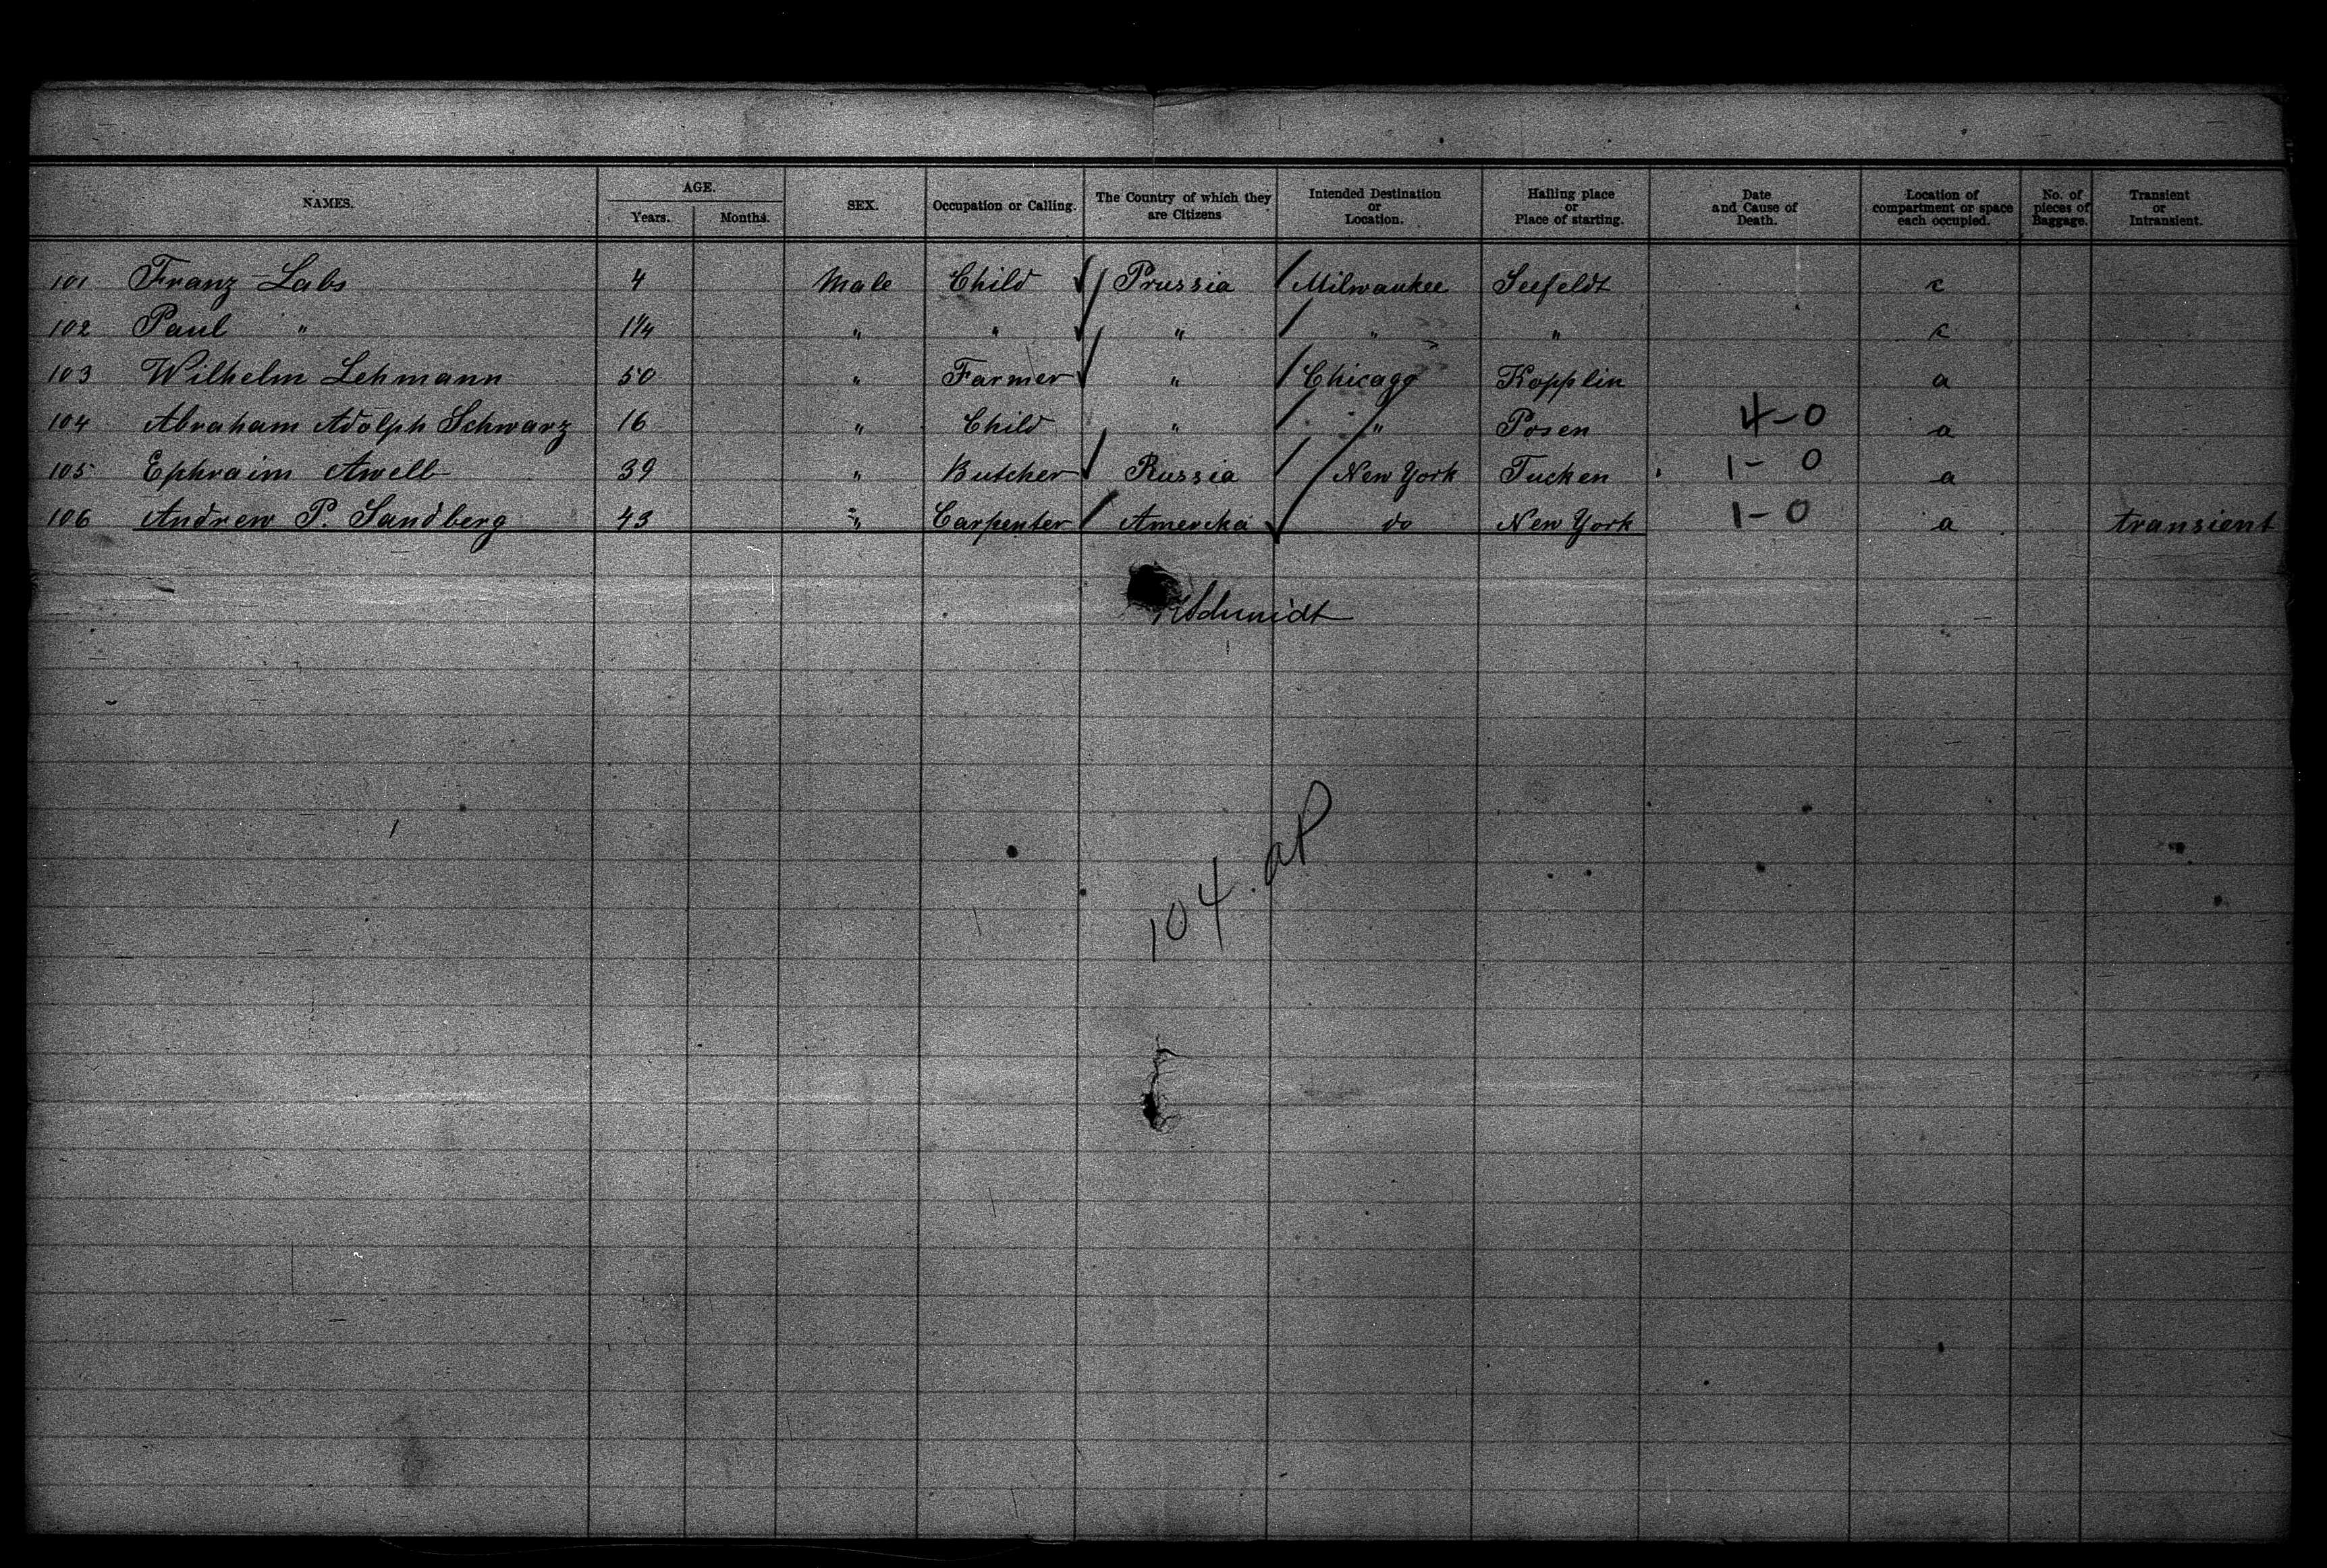 NAMES. AGE. Years. Months. SEX. Occupation or Calling. The Country of which they are Citizens Intended Destination or Location. Hailing place or Place of starting. Date and Cause of Death. Location of compartment or space each occupied. No. of pieces of Baggage. Transient or Intransient.
101 Franz Labs 4 Male Child Prussia Milwaukee Seefeldt c
102 Paul " 1 1/4 " " " " " c
103 Wilhelm Lehmann 50 " Farmer " Chicago Kopplin a
104 Abraham Adolph Schwarz 16 " Child " " Posen 4-0 a
105 Ephraim Awell 39 " Butcher Russia New York Tucken 1-0 a
106 Andrew P. Sandberg 43 " Carpenter Amercka do New York 1-0 a transient
Schmidt
104. aP